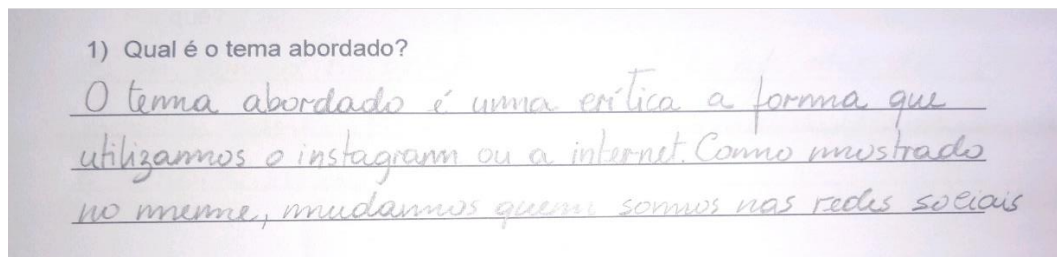 1) Qual é o tema abordado?
O tema abordado é uma crítica a forma que
utilizamos o instagram ou a internet. Como mostrado
no meme, mudamos quem somos nas redes sociais